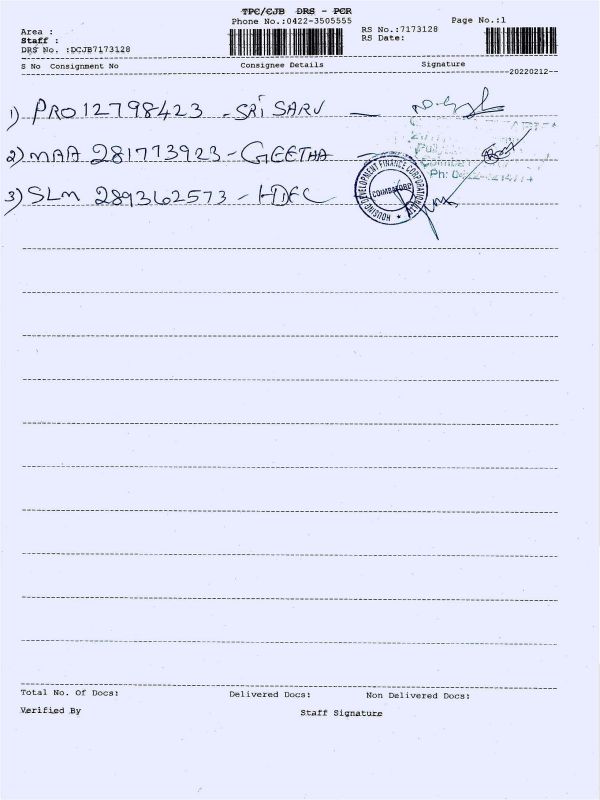 TPC/CJB DRS - PCR
Phone No.:0422-3505555
Page No.:1
Area :
Staff :
DRS No. :DCJB7173128
RS No.:7173128
RS Date:
S No Consignment No Consignee Details Signature
20220212
1) PRO12798423 - SRI SARU
2) MAA 281773923 - GEETHA
3) SLM 289362573 - HDFC
HOUSING DEVELOPMENT FINANCE CORPORATION
COIMBATORE
Total No. Of Docs: Delivered Docs: Non Delivered Docs:
Verified By Staff Signature